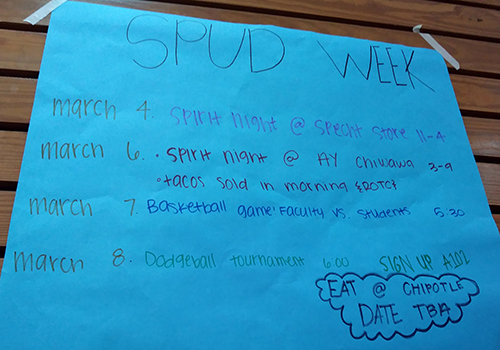 SPUD WEEK
march 4. Spirit night @ Specht Store 11-4
march 6. • Spirit night @ AY Chiwawa 3-9
• tacos sold in morning {ROTC}
march 7. Basketball game: Faculty vs. Students 5:30
march 8. Dodgeball tournament 6:00 SIGN UP A102
EAT @ CHIPOTLE
DATE TBA